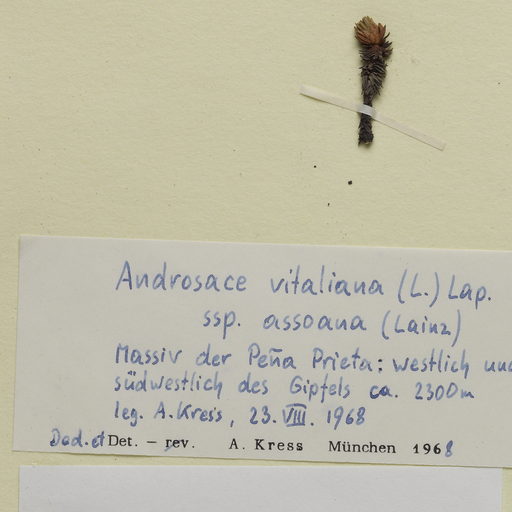 Androsace vitaliana (L.) Lap.
ssp. assoana (Lainz)
Massiv der Peña Prieta: westlich und
südwestlich des Gipfels ca. 2300m
leg. A. Kress, 23. VIII. 1968
Ded. et Det. – rev. A. Kress München 1968